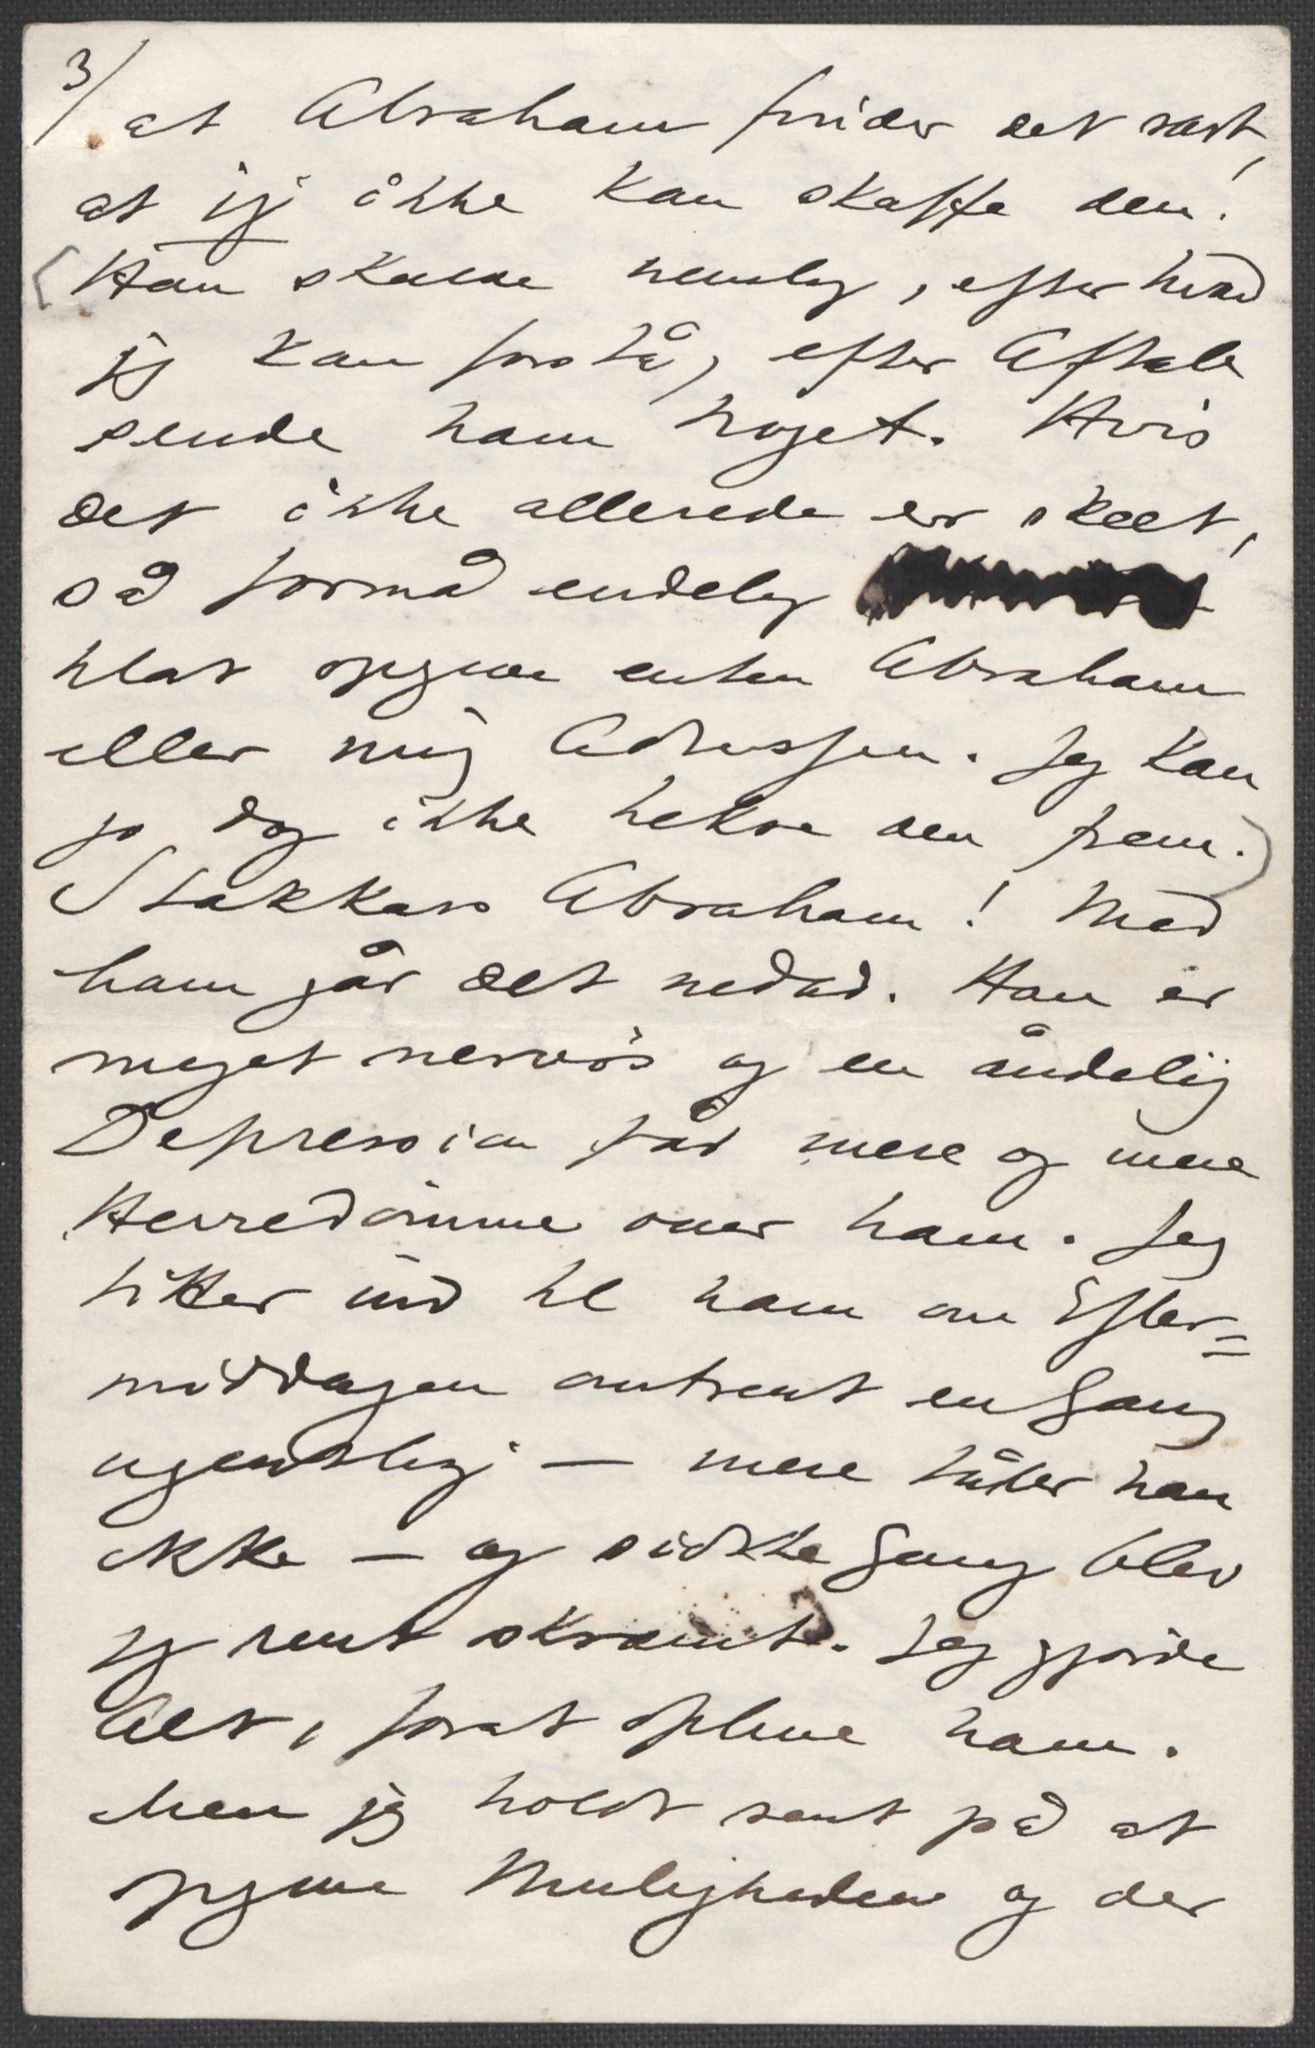 3/
at Abraham finder det rart,
at jeg ikke kan skaffe den.
(Han skulde nemlig, efter hvad
jeg kan forstå, efter Aftale
sende ham noget. Hvis
det ikke allerede er skeet,
så formå endelig
til at opgive enten Abraham
eller mig Adressen. Jeg kan
jo dog ikke hekse den frem.)
Stakkars Abraham! Med
ham går det nedad. Han er
meget nervös og en åndelig
Depression får mere og mere
Herredömme over ham. Jeg
titter ind til ham om Efter=
middagen omtrent en Gang
ugentlig – mere tåler han
ikke – og sidste Gang blev
jeg rent skræmt. Jeg gjorde
Alt, forat oplive ham.
Men jeg holdt rent på at
opgive Muligheden og der